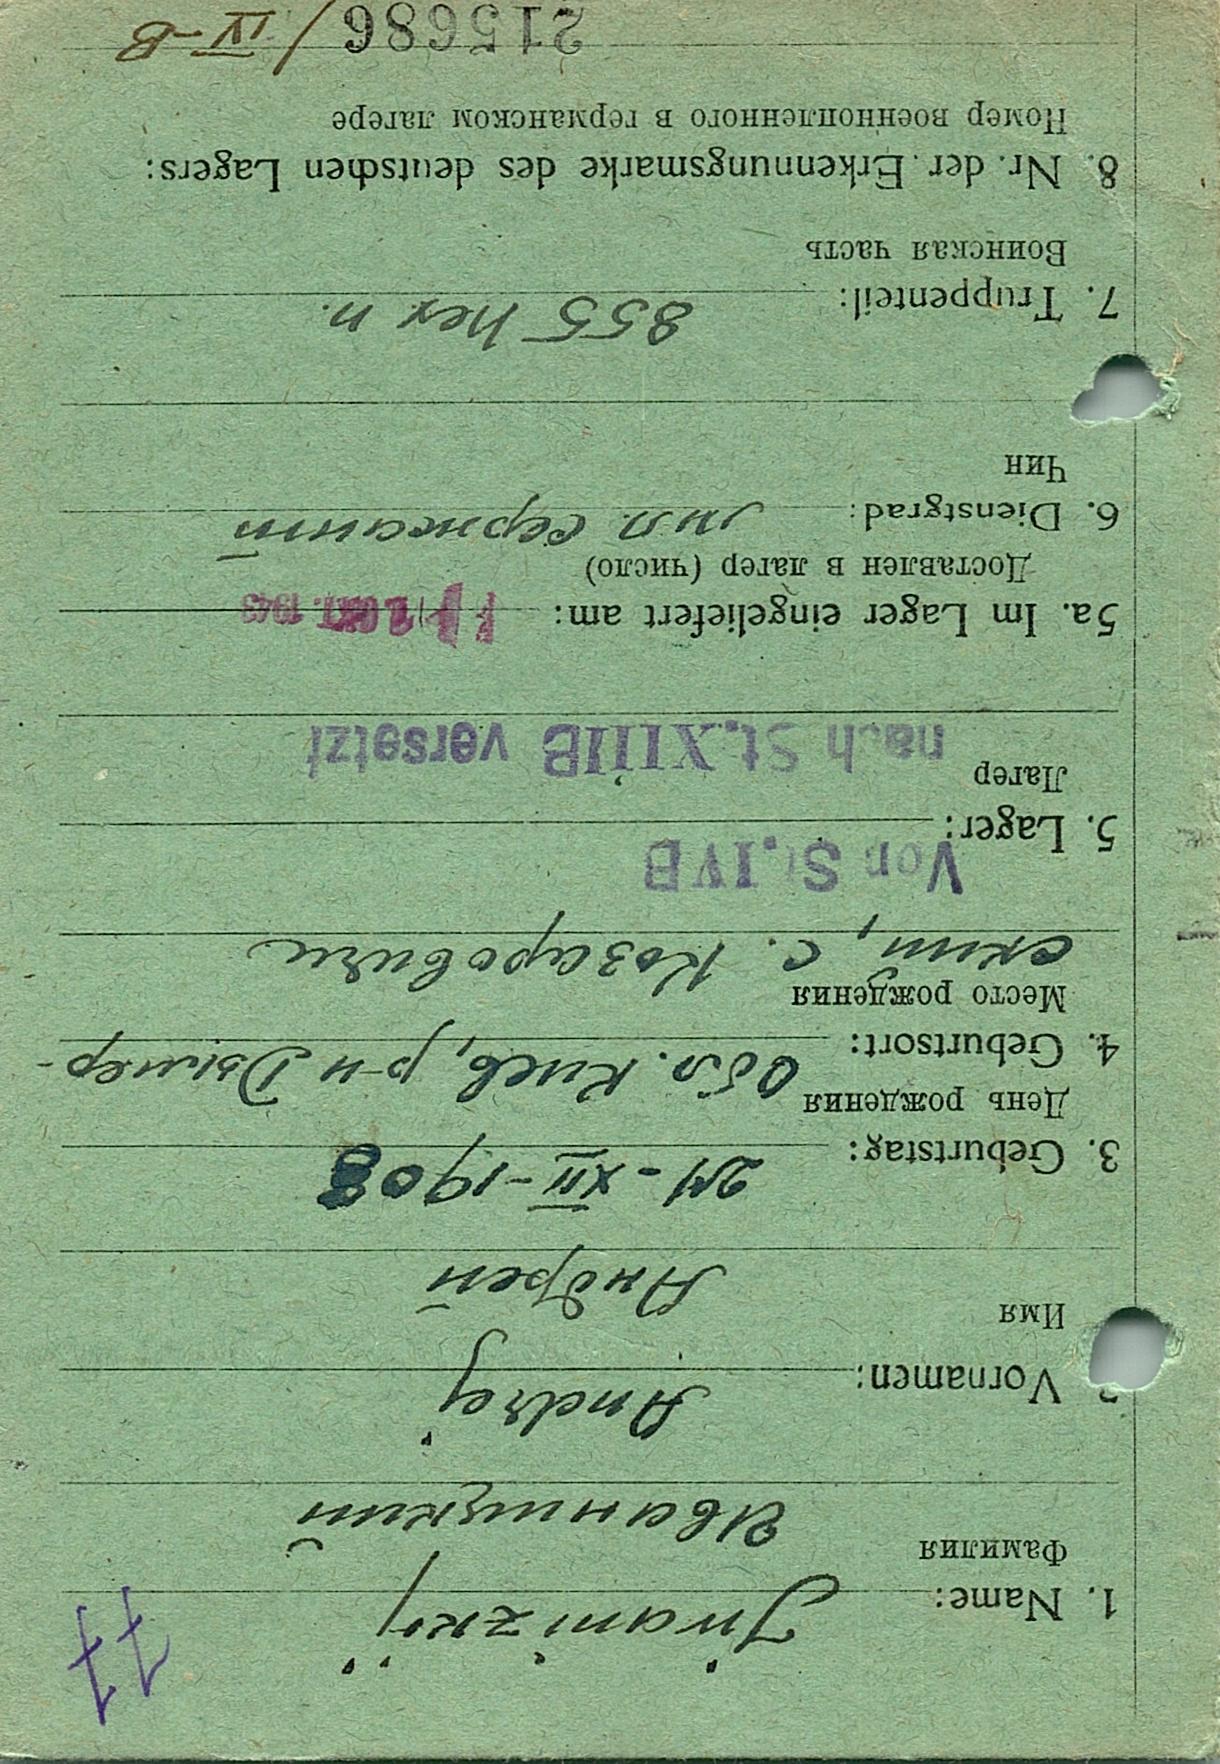 1. Name: Jwanizkij
Фамилия
Иваницкий
Vornamen: Andrej
Имя
Андрей
3. Geburtstag: 24-XII-1908
День рождения
4. Geburtsort: Обл. Киев, р-н Дымер-
Место рождения
ский, с. Козаровичи
Von St. IVB
5. Lager:
Лагер
nach St. XIIIB versetzt
5a. Im Lager eingeliefert am: 1943
Доставлен в лагер (число)
6. Dienstgrad: мл. сержант
Чин
7. Truppenteil: 855 пех п.
Воинская часть
8. Nr. der Erkennungsmarke des deutschen Lagers:
Номер военнопленного в германском лагере
215686 / IV-B